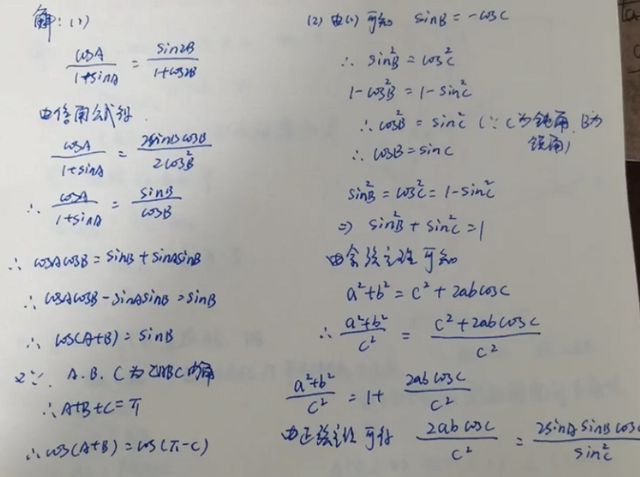 解：(1)
cosA/(1+sinA) = sin2B/(1+cos2B)
由倍角公式得
cosA/(1+sinA) = 2sinBcosB/2cos²B
∴ cosA/(1+sinA) = sinB/cosB
∴ cosAcosB = sinB + sinAsinB
∴ cosAcosB - sinAsinB = sinB
∴ cos(A+B) = sinB
又∵ A、B、C为△ABC内角
∴ A+B+C = π
∴ cos(A+B) = cos(π-C)
(2) 由(1)可知 sinB = -cosC
∴ sin²B = cos²C
1-cos²B = 1-sin²C
∴ cos²B = sin²C (∵ C为钝角, B为锐角)
∴ cosB = sinC
sin²B = cos²C = 1-sin²C
⇒ sin²B + sin²C = 1
由余弦定理可知
a²+b² = c²+2abcosC
∴ (a²+b²)/c² = (c²+2abcosC)/c²
(a²+b²)/c² = 1 + 2abcosC/c²
由正弦定理可得 2abcosC/c² = 2sinAsinBcosC/sin²C